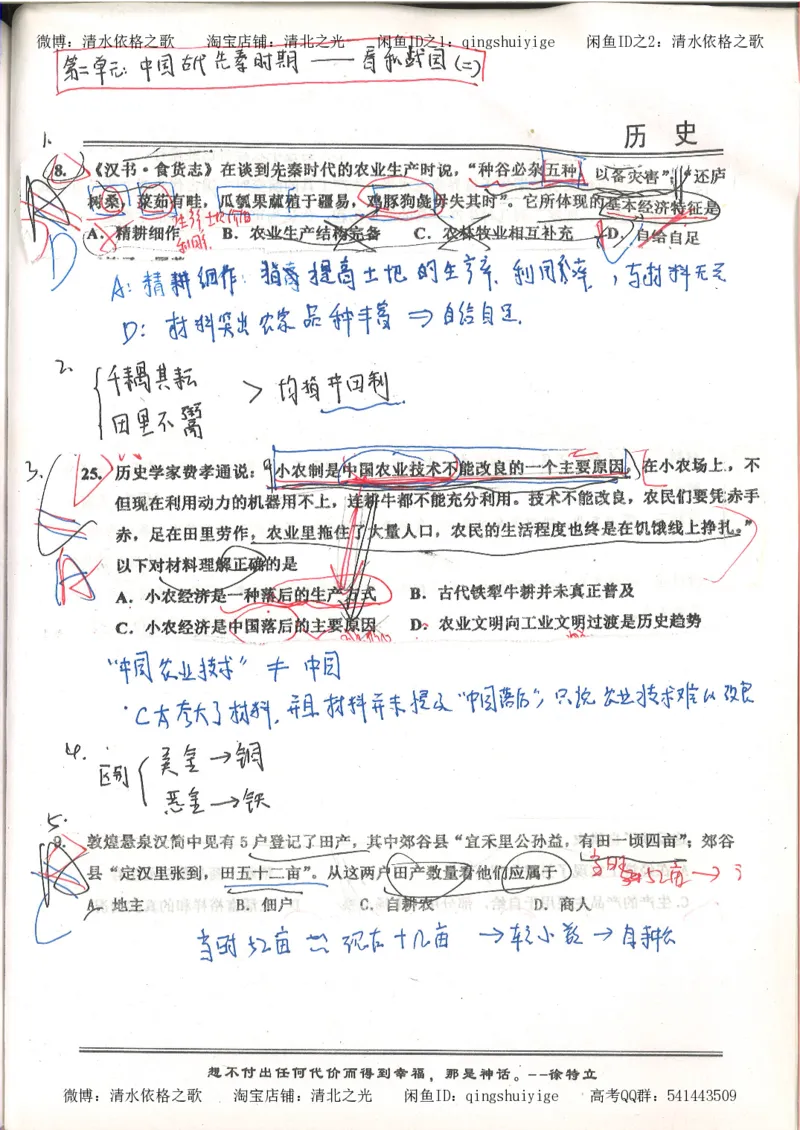 微博：清水依格之歌 淘宝店铺：清北之光 闲鱼ID之1：qingshuiyige 闲鱼ID之2：清水依格之歌
第二单元：中国古代先秦时期——春秋战国(二)
历 史
1.
8. 《汉书·食货志》在谈到先秦时代的农业生产时说，“种谷必杂五种，以备灾害”，“还庐
树桑，菜茹有畦，瓜瓠果蓏植于疆易，鸡豚狗彘毋失其时”。它所体现的基本经济特征是
A. 精耕细作 B. 农业生产结构完备 C. 农林牧业相互补充 D. 自给自足
D
A：精耕细作：指着提高土地的生产率、利用率，与材料无关
D：材料突出农家品种丰富⇒自给自足.
2. 千耦其耘
田里不鬻
> 均指井田制
3.
25. 历史学家费孝通说：“小农制是中国农业技术不能改良的一个主要原因。在小农场上，不
但现在利用动力的机器用不上，连耕牛都不能充分利用。技术不能改良，农民们要凭赤手
赤，足在田里劳作，农业里拖住了大量人口，农民的生活程度也终是在饥饿线上挣扎。”
以下对材料理解正确的是
A
A. 小农经济是一种落后的生产方式 B. 古代铁犁牛耕并未真正普及
C. 小农经济是中国落后的主要原因 D. 农业文明向工业文明过渡是历史趋势
“中国农业技术” ≠ 中国
·C夸大了材料，并且材料并未提及“中国落后”，只说农业技术难以改良
4. 区别
美金→铜
恶金→铁
5.
9. 敦煌悬泉汉简中见有5户登记了田产，其中郊谷县“宜禾里公孙益，有田一顷四亩”；郊谷
县“定汉里张到，田五十二亩”。从这两户田产数量看他们应属于
当时 52亩→
A. 地主 B. 佃户 C. 自耕农 D. 商人
当时52亩≈现在十几亩 →较小数→自耕农
想不付出任何代价而得到幸福，那是神话。--徐特立
微博：清水依格之歌 淘宝店铺：清北之光 闲鱼ID：qingshuiyige 高考QQ群：541443509